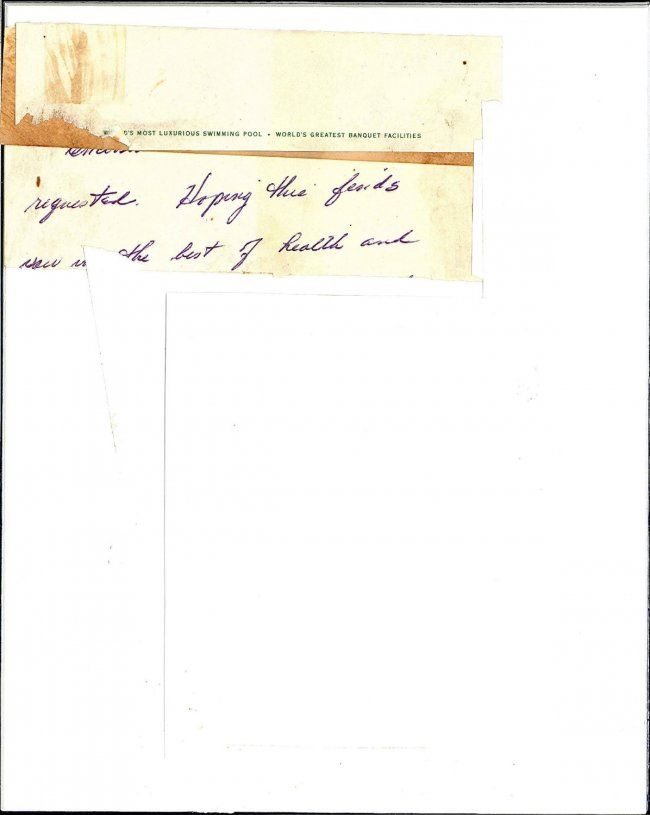 D'S MOST LUXURIOUS SWIMMING POOL • WORLD'S GREATEST BANQUET FACILITIES
requested. Hoping this finds
the best of health and